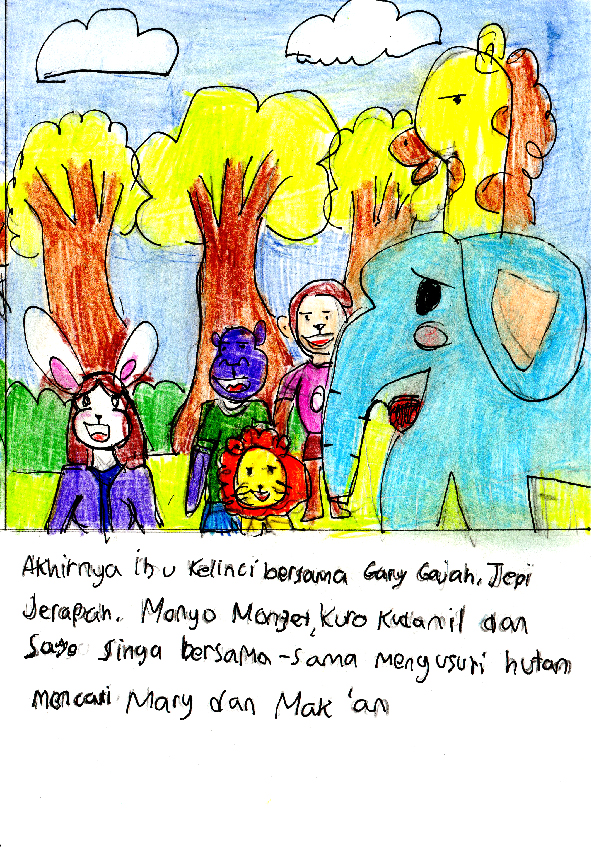 Akhirnya ibu kelinci bersama Gary Gajah, Jepi
Jerapah, Monyo Monyet, Kuro Kudanil dan
Singa bersama-sama mengusuri hutan
mencari Mary dan Mak 'an